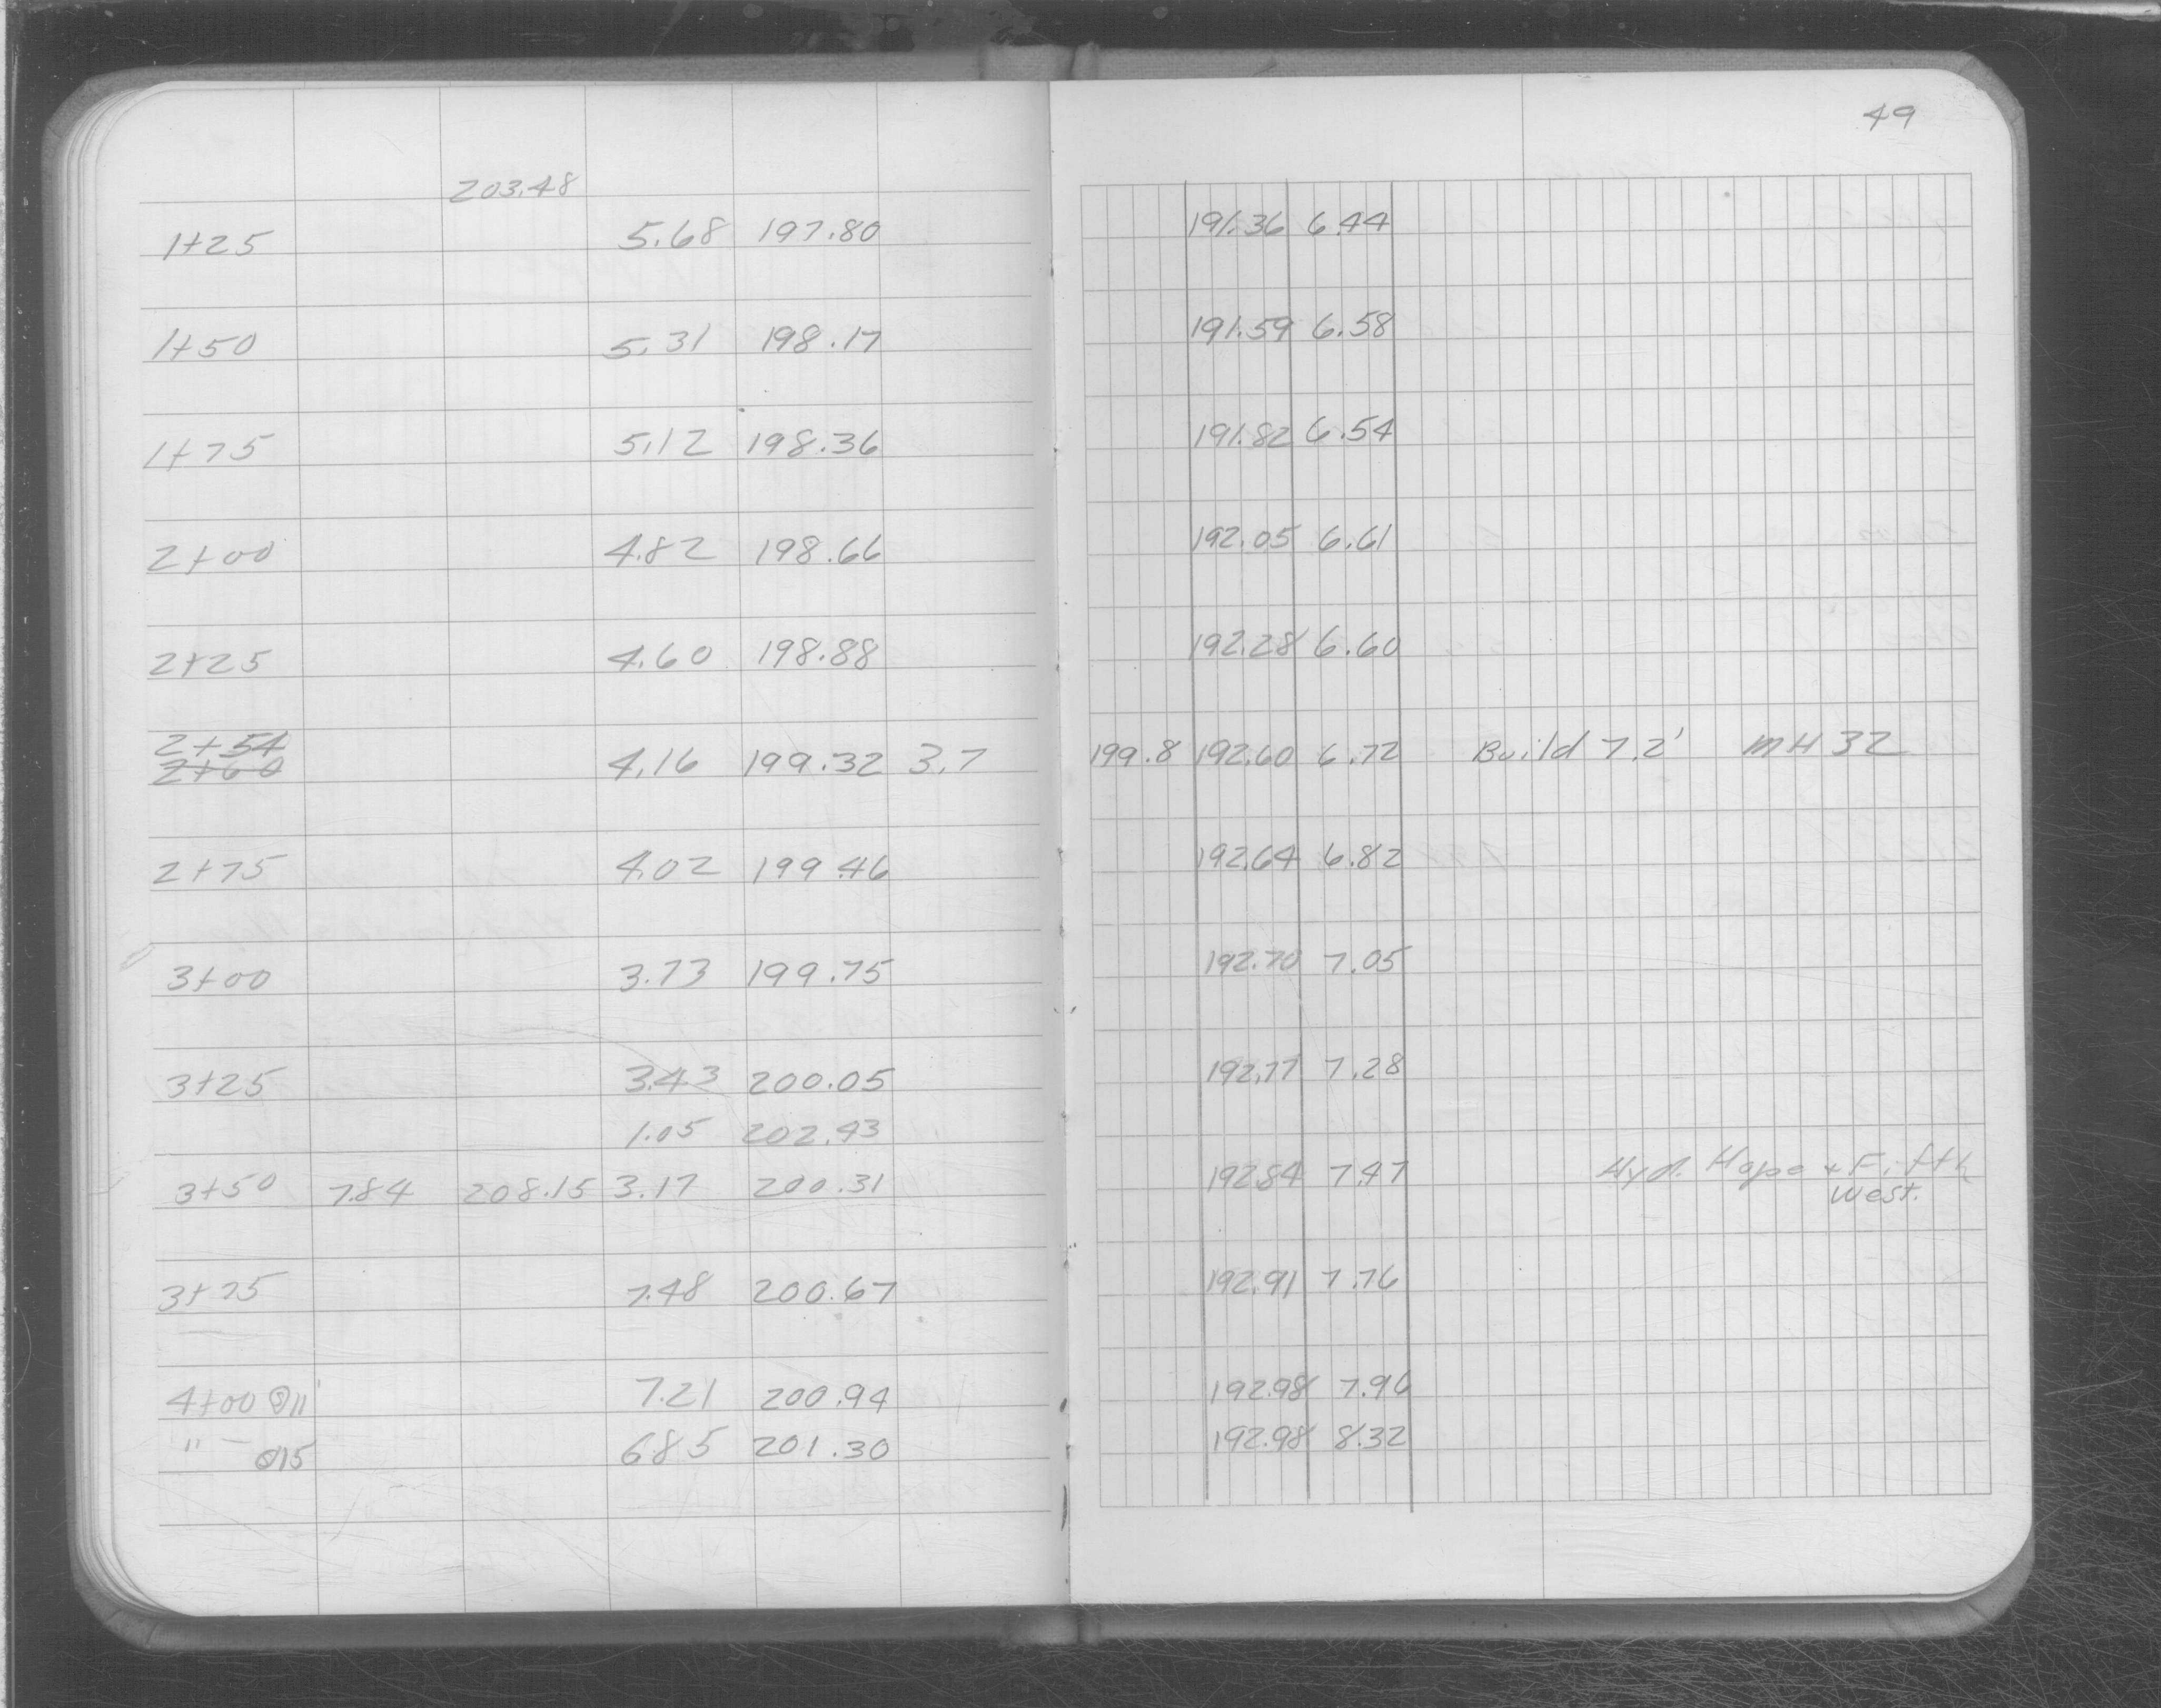 49
203.48
1+25 5.68 197.80 191.36 6.44
1+50 5.31 198.17 191.59 6.58
1+75 5.12 198.36 191.82 6.54
2+00 4.82 198.66 192.05 6.61
2+25 4.60 198.88 192.28 6.60
2+54
2+60 4.16 199.32 3.7 199.8 192.60 6.72 Build 7.2' MH 32
2+75 4.02 199.46 192.64 6.82
3+00 3.73 199.75 192.70 7.05
3+25 3.43 200.05 192.77 7.28
1.05 202.43
3+50 7.84 208.15 3.17 200.31 192.84 7.47 Hyd. Hope + Fifth
West.
3+75 7.48 200.67 192.91 7.76
4+00 @11' 7.21 200.94 192.98 7.96
" @15 6.85 201.30 192.98 8.32